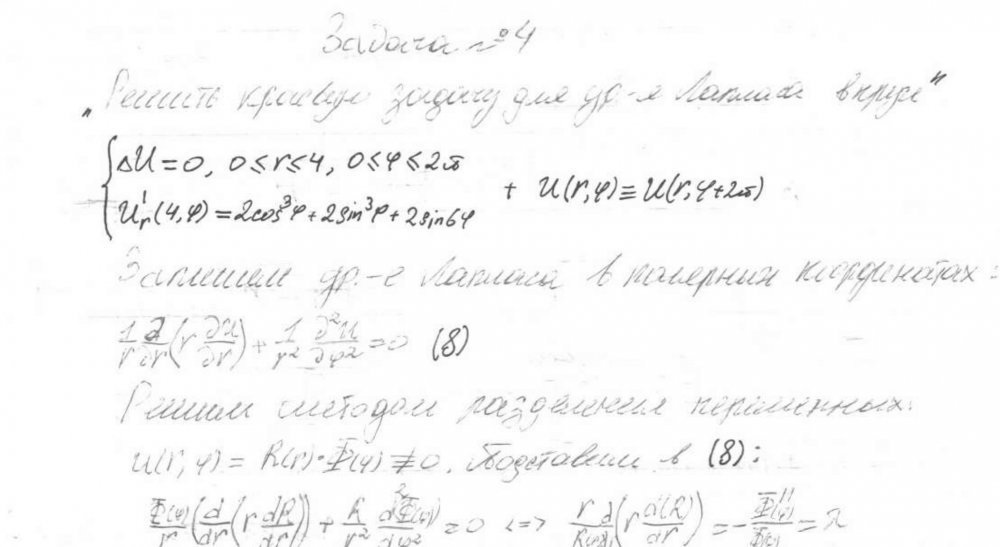 Задача №4
„Решить краевую задачу для ур-я Лапласа в круге"
ΔU=0, 0≤r≤4, 0≤φ≤2π
U'ᵣ(4,φ)=2cos³φ+2sin³φ+2sin6φ + U(r,φ)≡U(r,φ+2π)
Запишем ур.-е Лапласа в полярных координатах:
1/r ∂/∂r(r ∂U/∂r)+1/r² ∂²U/∂φ²=0 (8)
Решаем методом разделения переменных:
U(r,φ)=R(r)·Φ(φ)≢0. Подставим в (8):
Φ(φ)/r(d/dr(r dR/dr))+R/r² d²Φ(φ)/dφ²=0 <=> r/R(r) d/dr(r d(R)/dr)=-Φ''(φ)/Φ(φ)=λ